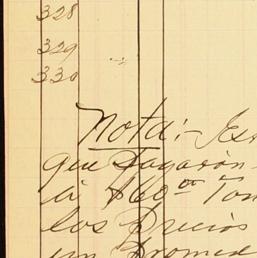 328
329
330
Nota:-
que Pagaron
á $60⁰⁰ Ton
los Precios
un Promed